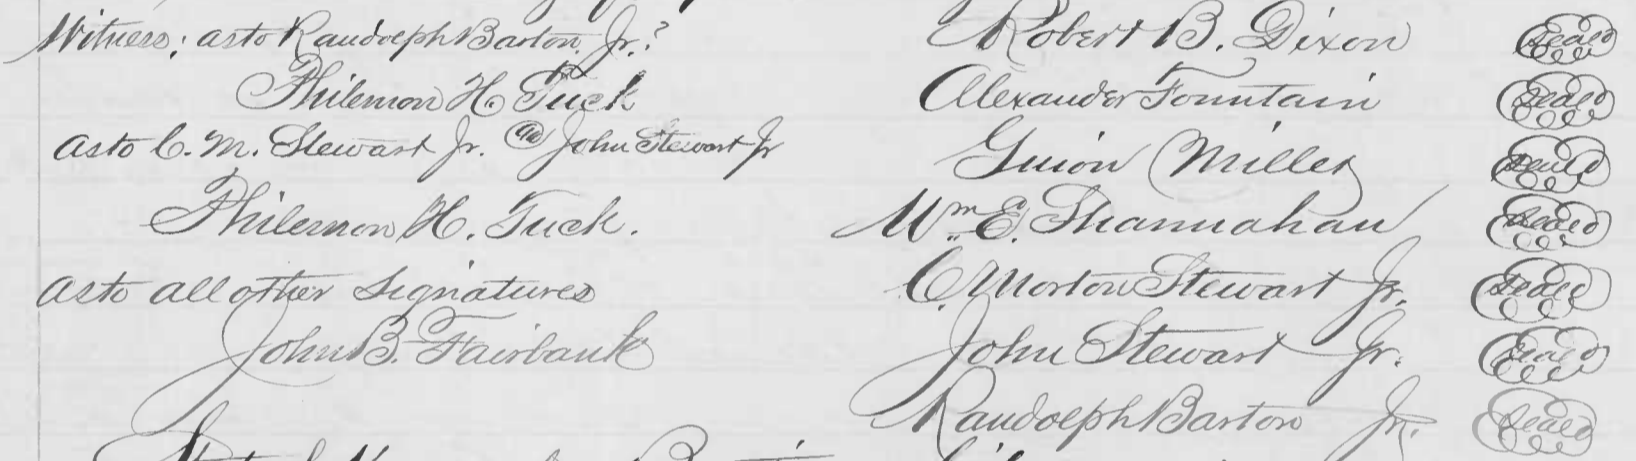 Witness: as to Randolph Barton, Jr.?
Philemon H Tuck
as to C. M. Stewart Jr. and John Stewart Jr
Philemon H. Tuck.
as to all other signatures
John B. Fairbank
Robert B. Dixon Seal
Alexander Fountain Seal
Guion Miller Seal
Wm. E. Shannahan Seal
C. Morton Stewart Jr. Seal
John Stewart Jr. Seal
Randolph Barton Jr. Seal